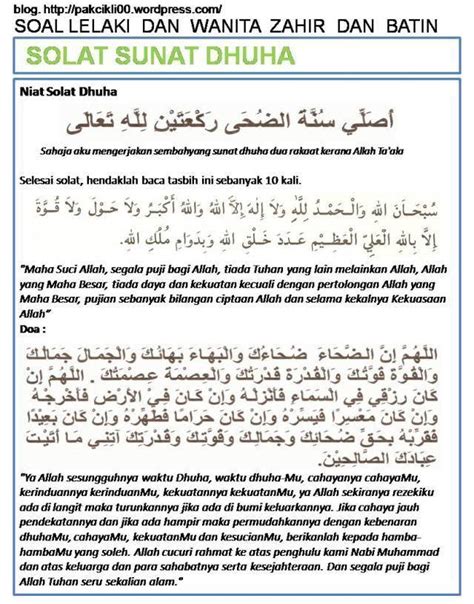 blog. http://pakcikli00.wordpress.com/
SOAL LELAKI DAN WANITA ZAHIR DAN BATIN
SOLAT SUNAT DHUHA
Niat Solat Dhuha
اُصَلِّي سُنَّةَ الضُّحَى رَكْعَتَيْنِ لِلَّهِ تَعَالَى
Sahaja aku mengerjakan sembahyang sunat dhuha dua rakaat kerana Allah Ta'aka
Selesai solat, hendaklah baca tasbih ini sebanyak 10 kali.
سُبْحَـانَ اللهِ وَالْـحَمْـدُ لِلَّهِ وَلاَ إِلَهَ إِلاَّ اللهُ وَاللهُ أَكْـبَرُ وَلاَ حَـوْلَ وَلاَ قُـوَّةَ
إِلاَّ بِاللهِ الْعَلِيِّ الْعَظِيْـمِ عَـدَدَ خَـلْقِ اللهِ وَبِـدَوَامِ مُلْكِ اللهِ.
"Maha Suci Allah, segala puji bagi Allah, tiada Tuhan yang lain melainkan Allah, Allah
yang Maha Besar, tiada daya dan kekuatan kecuali dengan pertolongan Allah yang
Maha Besar, pujian sebanyak bilangan ciptaan Allah dan selama kekalnya Kekuasaan
Allah”
Doa :
اَللَّهُمَّ إِنَّ الضَّحَاءَ ضَحَاءُكَ وَالْبَهَاءَ بَهَائُكَ وَالْجَمَالَ جَمَالُكَ
وَالْقُوَّةَ قُوَّتُكَ وَالْقُدْرَةَ قُدْرَتُكَ وَالْعِصْمَةَ عِصْمَتُكَ . اَللَّهُمَّ إِنْ
كَانَ رِزْقِي فِي السَّمَاءِ فَأَنْزِلْهُ وَإِنْ كَانَ فِي الأَرْضِ فَأَخْرِجْهُ
وَإِنْ كَانَ مُعَسِّرًا فَيَسِّرْهُ وَإِنْ كَانَ حَرَامًا فَطَهِّرْهُ وَإِنْ كَانَ بَعِيْدًا
فَقَرِّبْهُ بِحَقِّ ضَحَائِكَ وَجَمَالِكَ وَقُوَّتِكَ وَقُدْرَتِكَ آتِنِي مَا أَتَيْتَ
عِبَادَكَ الصَّالِحِيْنَ.
"Ya Allah sesungguhnya waktu Dhuha, waktu dhuha-Mu, cahayanya cahayaMu,
kerinduannya kerinduanMu, kekuatannya kekuatanMu, ya Allah sekiranya rezekiku
ada di langit maka turunkannya jika ada di bumi keluarkannya. Jika cahaya jauh
pendekatannya dan jika ada hampir maka permudahkannya dengan kebenaran
dhuhaMu, cahayaMu, kekuatanMu dan kesucianMu, berikanlah kepada hamba-
hambaMu yang soleh. Allah cucuri rahmat ke atas penghulu kami Nabi Muhammad
dan atas keluarga dan para sahabatnya serta kesejahteraan. Dan segala puji bagi
Allah Tuhan seru sekalian alam.”